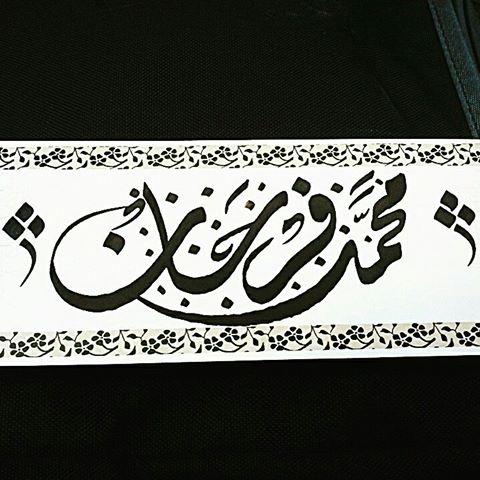 محمد فرحان